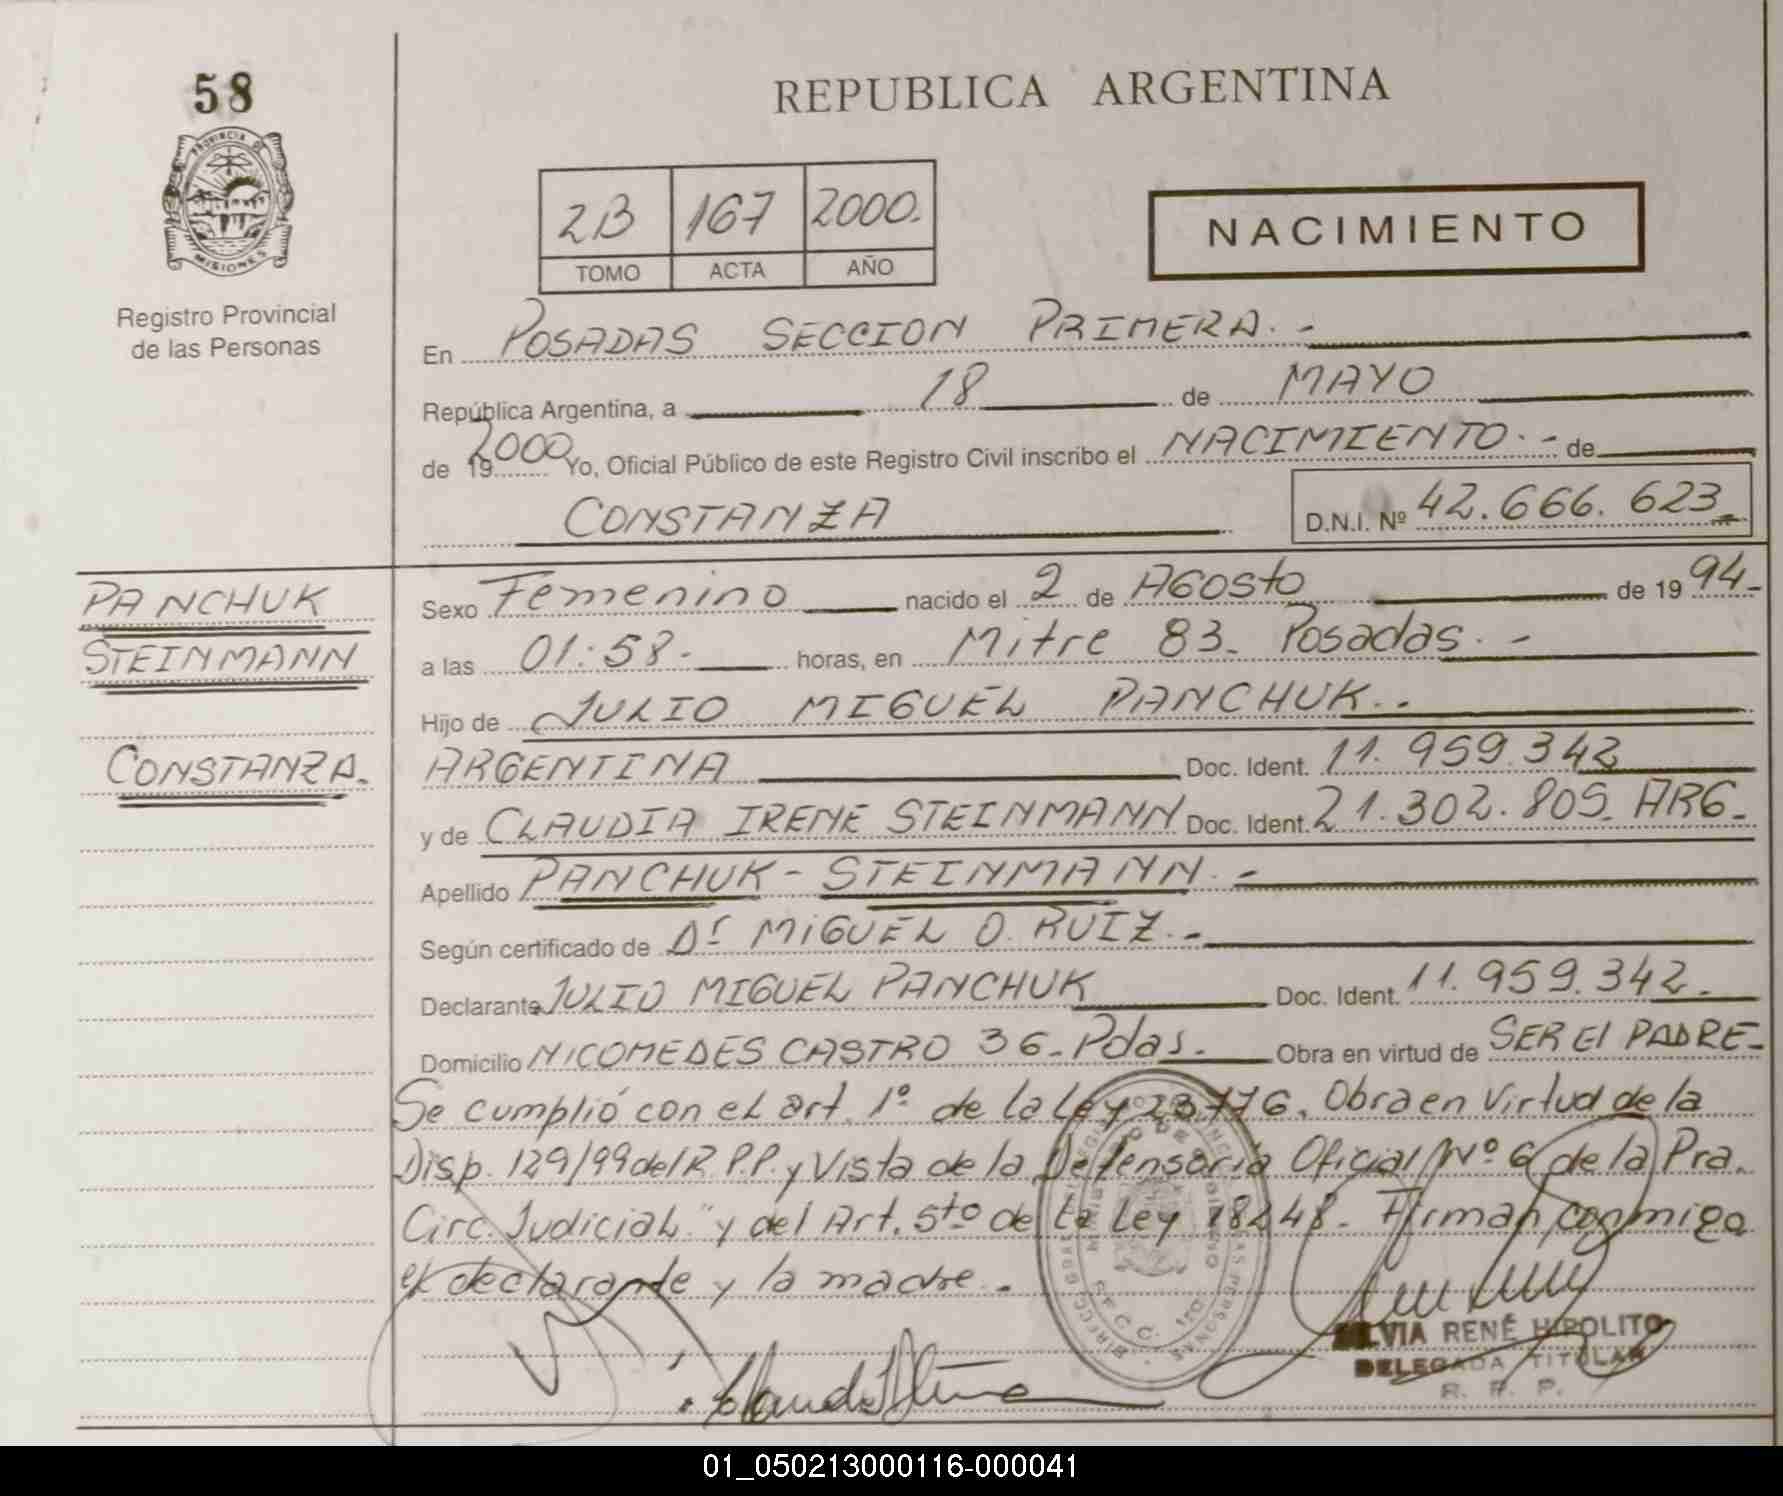 58
PROVINCIA DE
MISIONES
Registro Provincial
de las Personas
REPUBLICA ARGENTINA
2B 167 2000.
TOMO ACTA AÑO
NACIMIENTO
En POSADAS SECCION PRIMERA. -
República Argentina, a 18 de MAYO
de 19 2000 Yo, Oficial Público de este Registro Civil inscribo el NACIMIENTO. - de
CONSTANZA
D.N.I. Nº 42.666.623
PANCHUK
STEINMANN
CONSTANZA.
Sexo Femenino nacido el 2 de AGOSto de 19 94-
a las 01:58. horas, en Mitre 83. Posadas. -
Hijo de JULIO MIGUEL PANCHUK..
ARGENTINA Doc. Ident. 11.959.342
y de CLAUDIA IRENE STEINMANN Doc. Ident. 21.302.805. ARG.
Apellido PANCHUK - STEINMANN. -
Según certificado de Dr MiGUEL O. RUIZ. -
Declarante JULIO MIGUEL PANCHUK Doc. Ident. 11.959.342.
Domicilio NICOMEDES CASTRO 36. Pdas. Obra en virtud de SER El PADRE-
Se cumplió con el art. 1º de la Ley 23776. Obra en Virtud de la
Disp. 129/99 del R.P.P. y Vista de la Defensoría Oficial Nº 6 de la Pra.
Circ. Judicial" y del Art. 5to de la Ley 18248. Firman conmigo
el declarante y la madre. -
SILVIA RENÉ HIPOLITO
DELEGADA TITULAR
R. P. P.
01_050213000116-000041